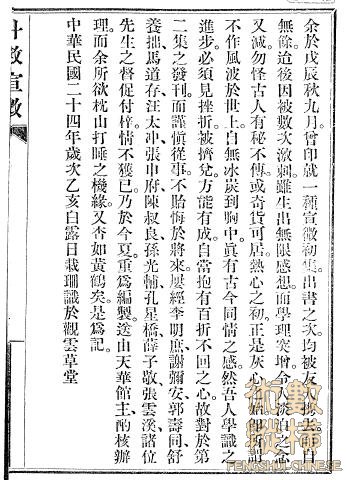 余於戊辰秋九月。曾印就一種宣微初集。出書之次。均被友人携去。而自
無餘。迨後因被數次激刺。雖生出無限感想。而學理突增。令人淡白之念
又滅。勿怪古人有秘不傳。或奇貨可居。熱心之初。正是灰心之始。卽所謂
不作風波於世上。自無氷炭到胸中。眞有古今同情之感。然吾人學識之
進步。必須見挫折。被擠兌。方能有成。自當抱有百折不回之心。故對於第
二集之發刊。而謹愼從事。不貽悔於將來。屢經李明庶。謝彌安。郭壽同。舒
養拙。馬道存。汪太冲。張申府。陳叔良。孫光輔。孔星橋。薛子敬。張雲漢。諸位
先生之督促付梓。情不獲已。乃於今夏。重爲編製。遂由天華館主。酌核辦
理。而余所欲枕山打睡之機緣。又杳如黃鶴矣。是爲記。
中華民國二十四年歲次乙亥白露日栽珊識於觀雲草堂
斗數宣微
FENGSHUI-CHINESE